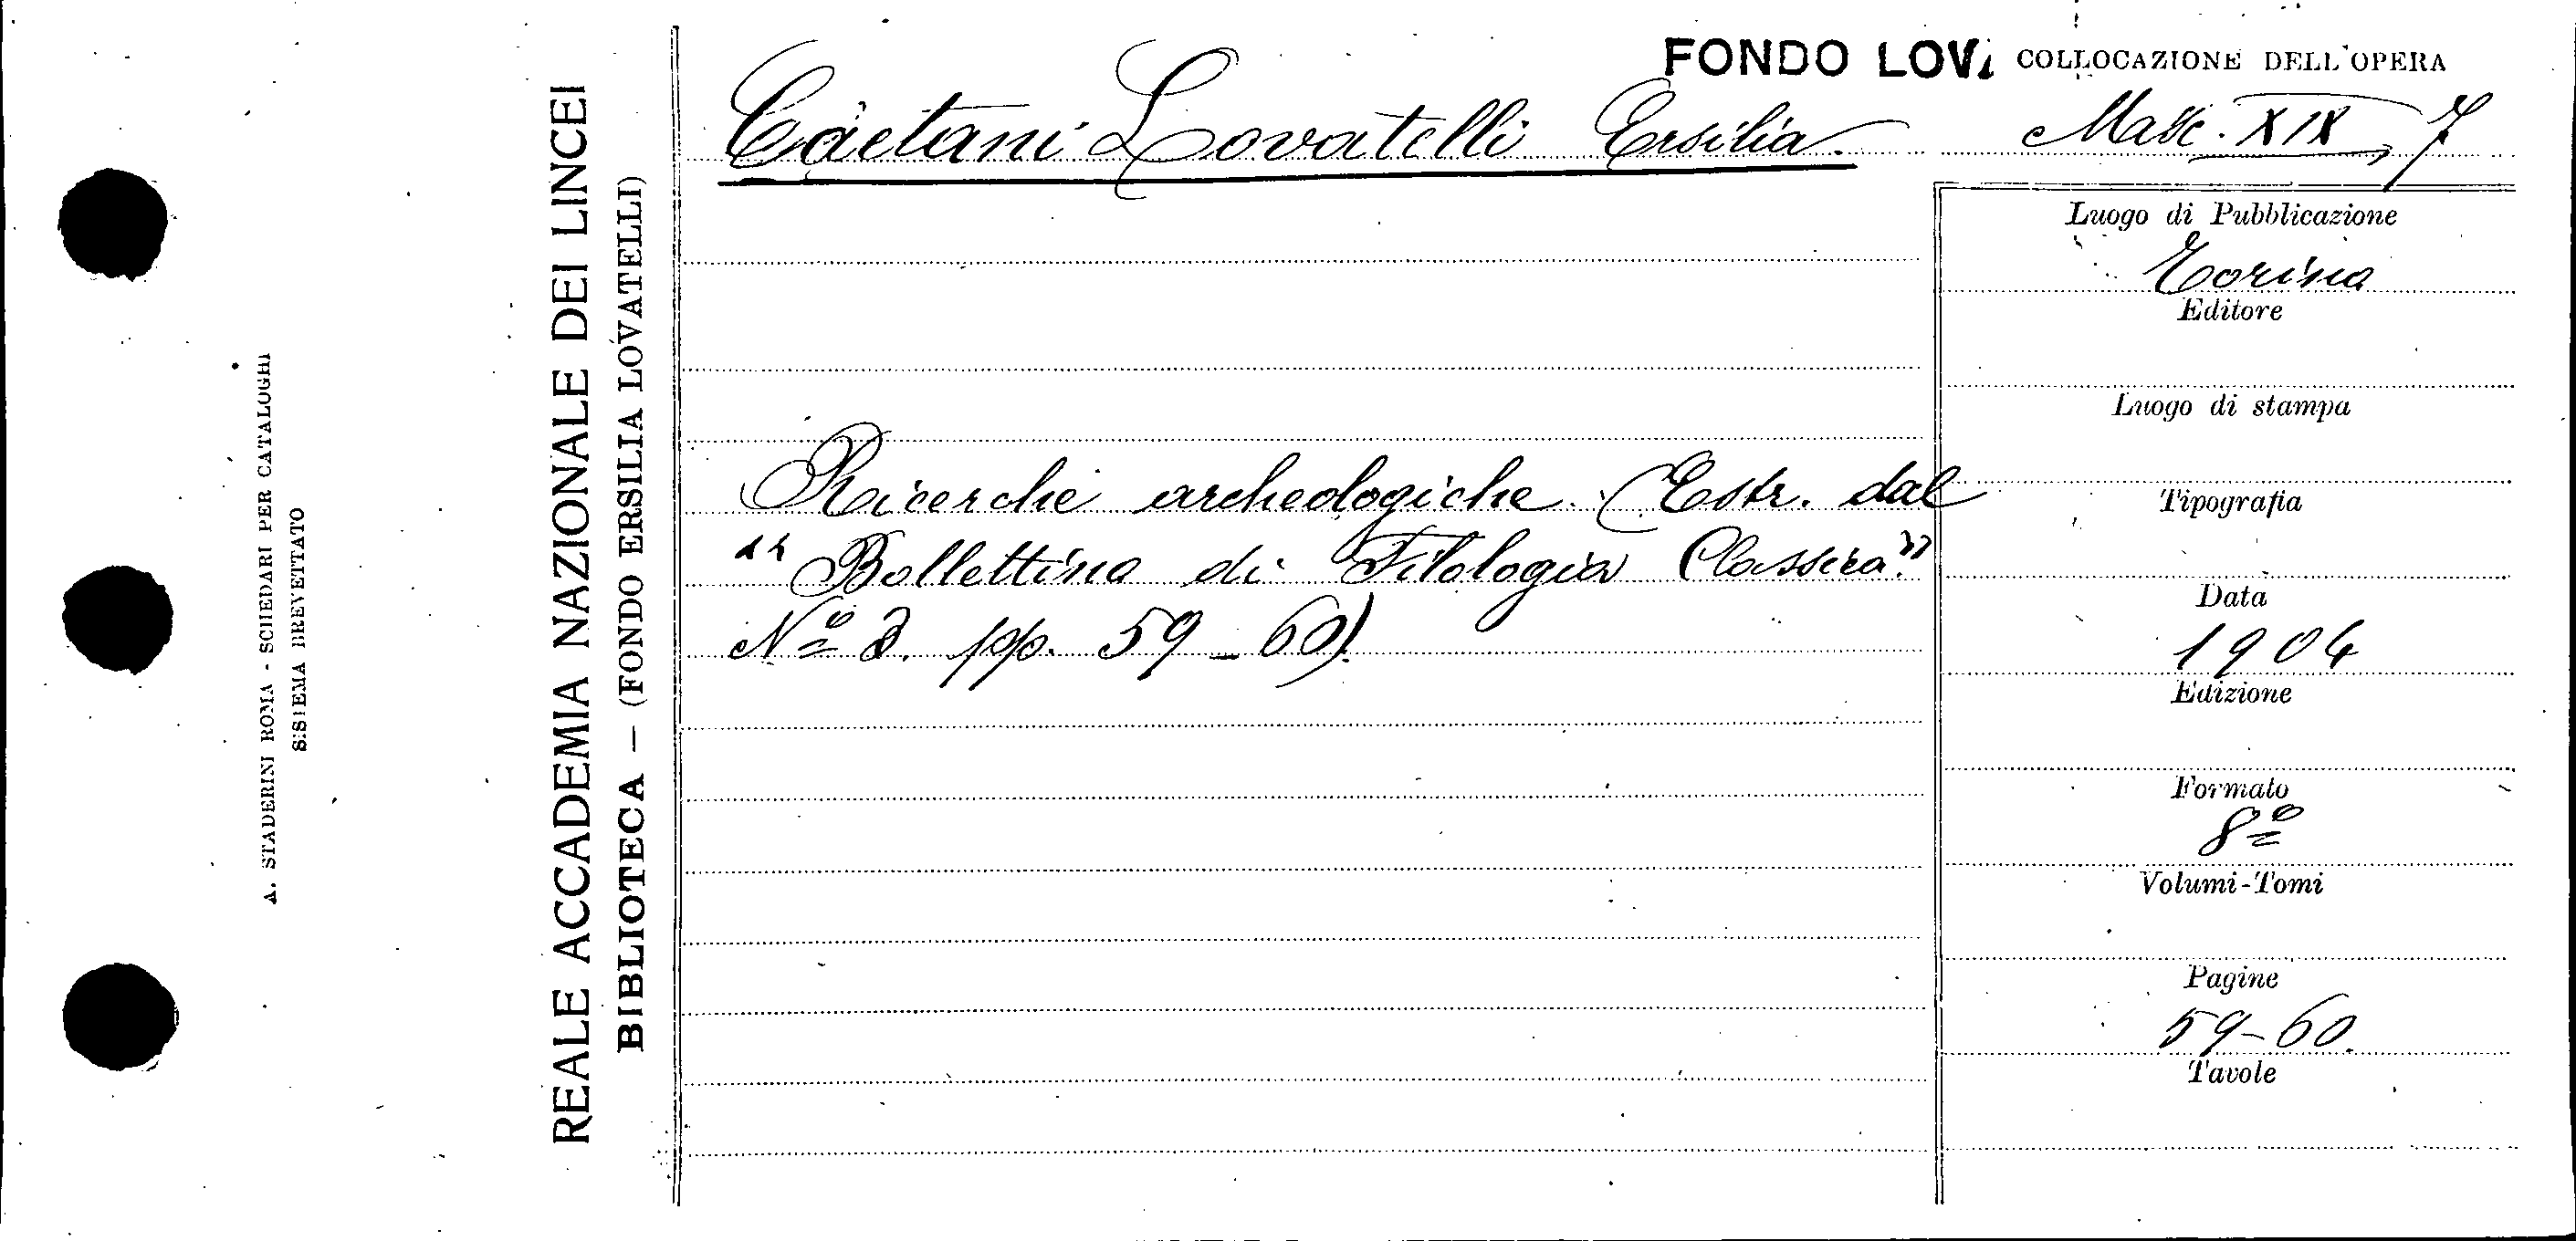 A. STADERINI ROMA - SCHEDARI PER CATALOGHI
SISTEMA BREVETTATO
REALE ACCADEMIA NAZIONALE DEI LINCEI
BIBLIOTECA — (FONDO ERSILIA LOVATELLI)
FONDO LOVA
COLLOCAZIONE DELL'OPERA
Caetani Lovatelli Ersilia
Misc. XIX, 7
Ricerche archeologiche. (Estr. dal
"Bollettino di Filologia Classica"
Nº 3. pp. 59-60).
Luogo di Pubblicazione
Torino
Editore
Luogo di stampa
Tipografia
Data
1904
Edizione
Formato
8º
Volumi-Tomi
Pagine
59-60.
Tavole